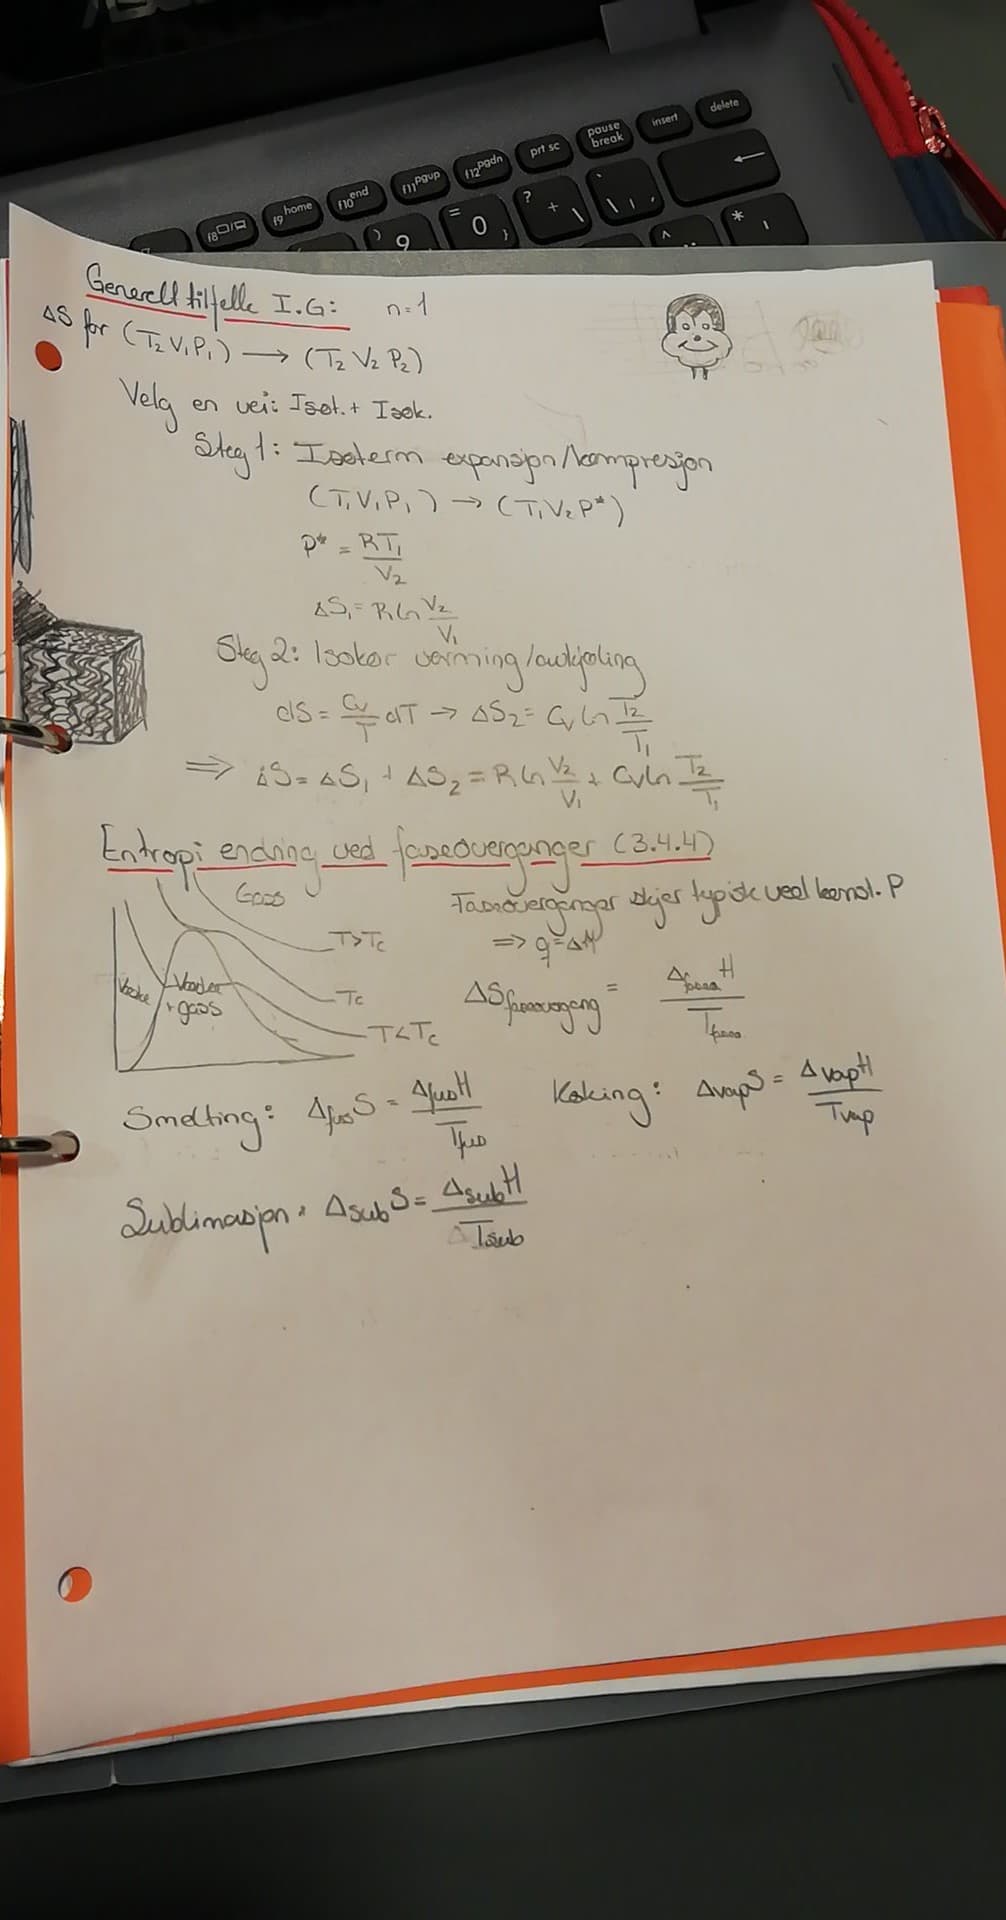 delete
insert
pause break
prt sc
f12 pgdn
f11 pgup
f10 end
f9 home
f8
? + \
= 0 }
) 9
* '
^ ¨
Generell tilfelle I.G: n=1
ΔS for (T₂ V₁ P₁) → (T₂ V₂ P₂)
Velg en vei: Isot. + Isok.
Steg 1: Isoterm expansjon/kompresjon
(T₁ V₁ P₁) → (T₁ V₂ P*)
P* = RT₁/V₂
ΔS₁ = R ln V₂/V₁
Steg 2: Isokor varming/avkjøling
dS = Cv/T dT → ΔS₂ = Cv ln T₂/T₁
⇒ ΔS = ΔS₁ + ΔS₂ = R ln V₂/V₁ + Cv ln T₂/T₁
Entropi endring ved faseoverganger (3.4.4)
Gass
T>Tc
Tc
T<Tc
Væske
Væske + gass
Faseoverganger skjer typisk ved konst. P
=> q = ΔH
ΔS faseovergang = Δfase H/Tfase
Smelting: Δfus S = Δfus H/Tfus
Koking: Δvap S = Δvap H/Tvap
Sublimasjon: Δsub S = Δsub H/Tsub